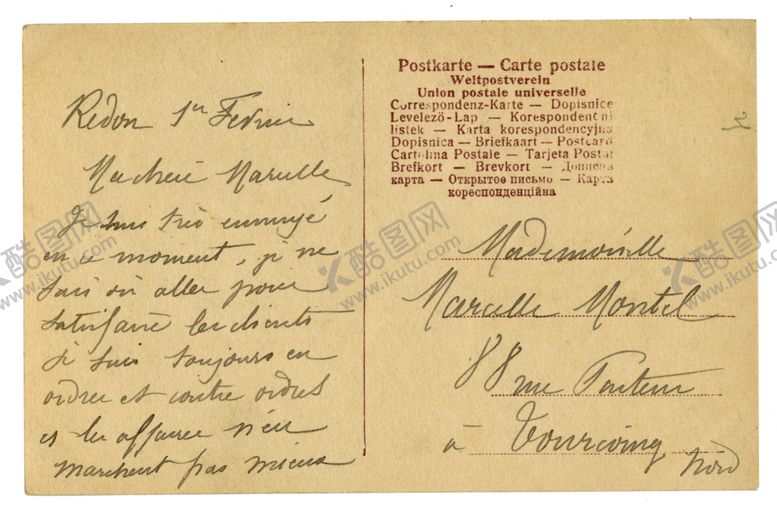 Redon 1er Février
Ma chère Marcelle
Je suis très ennuyé
en ce moment, je ne
sais où aller pour
satisfaire les clients
je suis toujours en
ordres et contre ordres
et les affaires n'en
marchent pas mieux
Postkarte — Carte postale
Weltpostverein
Union postale universelle
Correspondenz-Karte — Dopisnice
Levelező-Lap — Korespondenční
listek — Karta korespondencyjna
Dopisnica — Briefkaart — Postcard
Cartolina Postale — Tarjeta Postal
Brefkort — Brevkort — Дописна
карта — Открытое письмо — Карта
кореспонденційна
Mademoiselle
Marcelle Montel
88 rue Pasteur
à Tourcoing
Nord
酷图网
www.ikutu.com
酷图网
www.ikutu.com
酷图网
www.ikutu.com